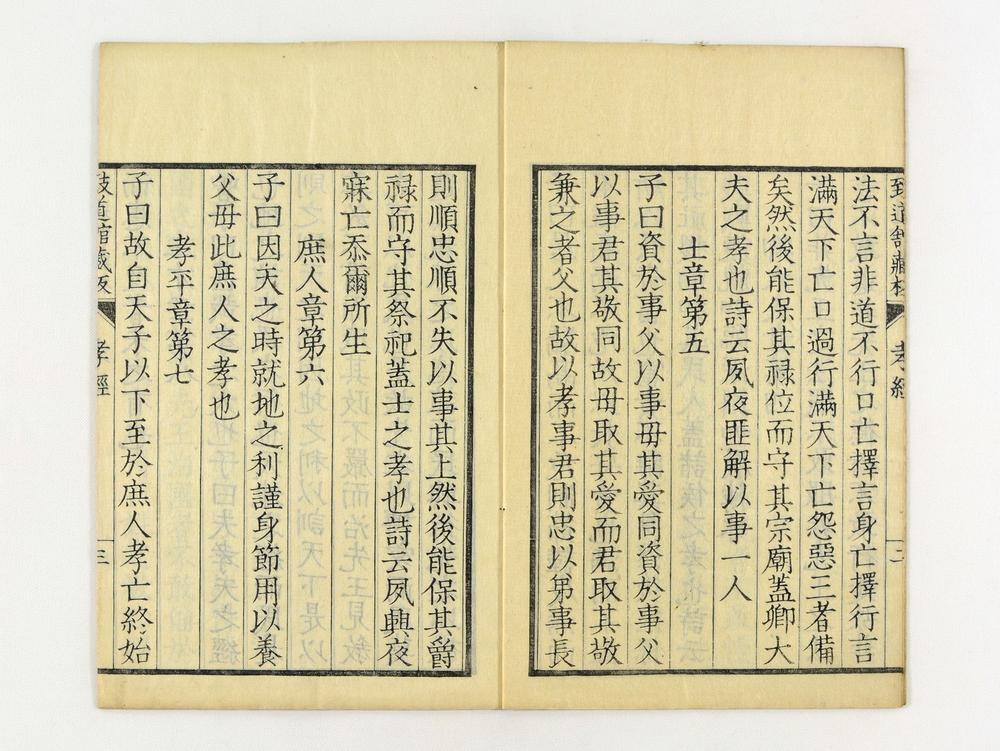 致道館藏板 孝經 二
法不言非道不行口亡擇言身亡擇行言
滿天下亡口過行滿天下亡怨惡三者備
矣然後能保其祿位而守其宗廟蓋卿大
夫之孝也詩云夙夜匪解以事一人
士章第五
子曰資於事父以事母其愛同資於事父
以事君其敬同故母取其愛而君取其敬
兼之者父也故以孝事君則忠以弟事長
則順忠順不失以事其上然後能保其爵
祿而守其祭祀蓋士之孝也詩云夙興夜
寐亡忝爾所生
庶人章第六
子曰因天之時就地之利謹身節用以養
父母此庶人之孝也
孝平章第七
子曰故自天子以下至於庶人孝亡終始
致道館藏板 孝經 三